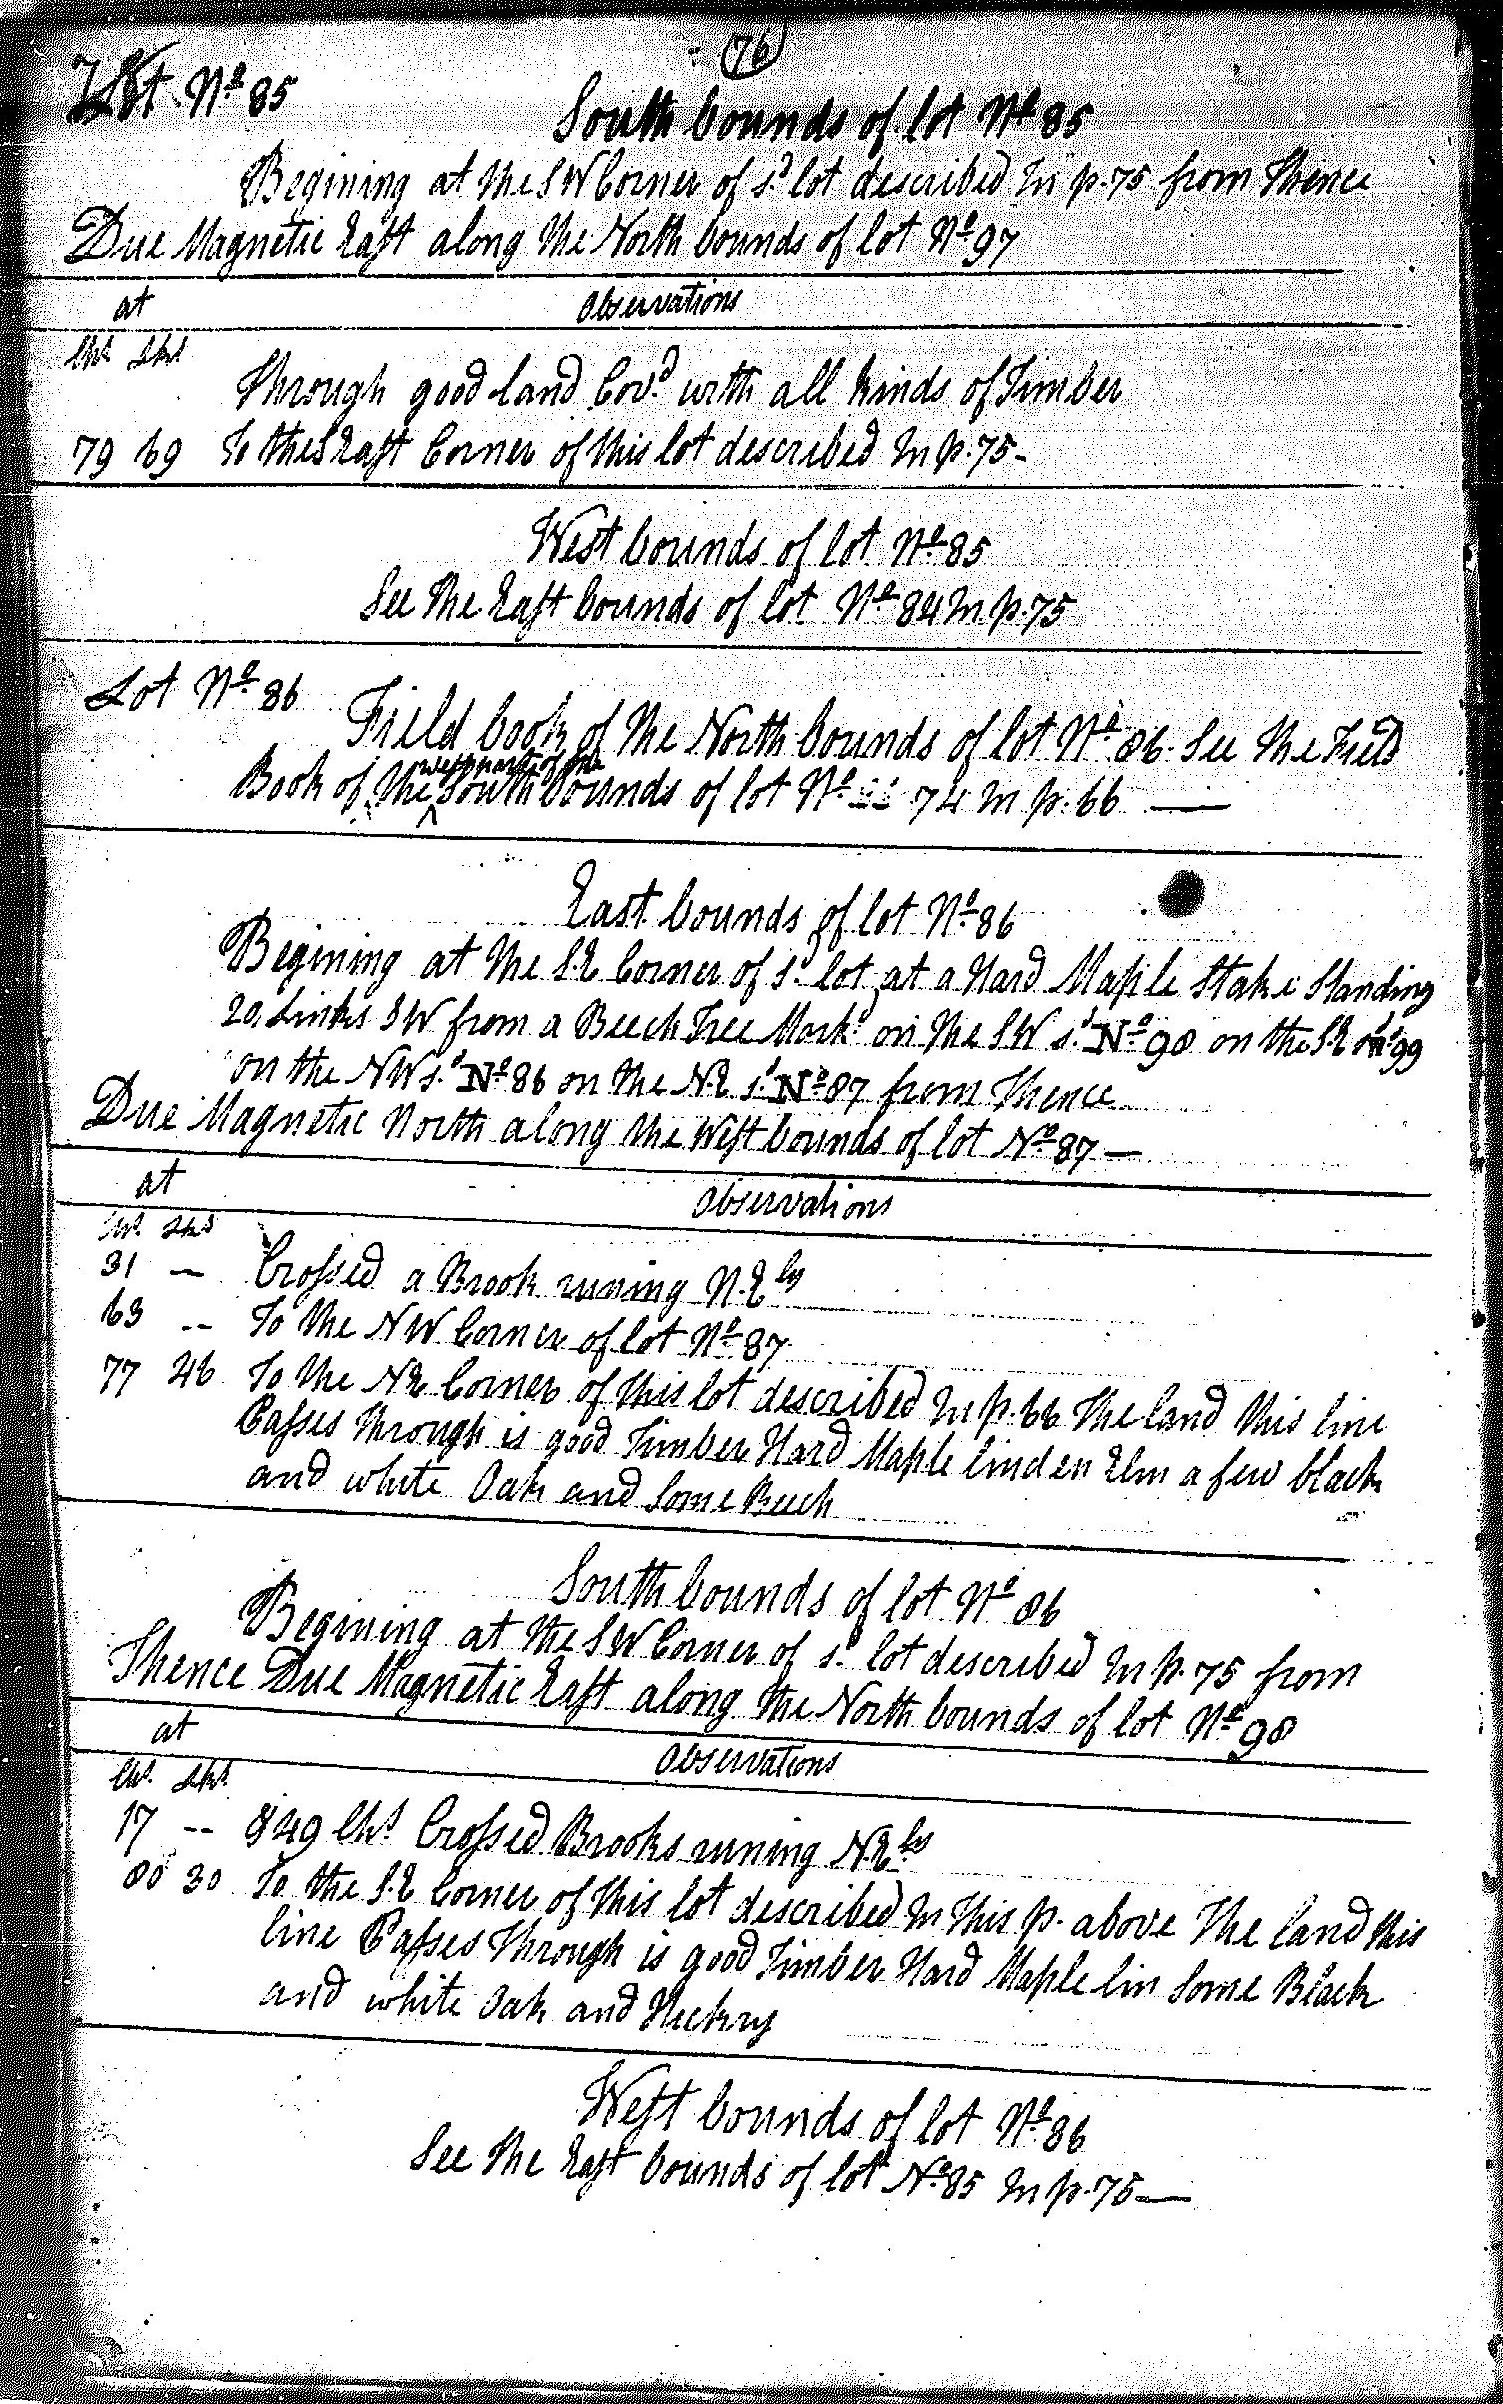 76
Lot Nº 85
South bounds of lot Nº 85
Begining at the SW Corner of sd lot described In p. 75 from Thence
Due Magnetic East along the North bounds of lot Nº 97
at Observations
Chs Lks
Through good land Covd with all kinds of Timber
79 69 To the S East Corner of this lot described In p. 75 -
West bounds of lot Nº 85
See the East bounds of lot Nº 84 In p. 75
Lot Nº 86
Field book of the North bounds of lot Nº 86. See the Field
west part of the
Book of the South bounds of lot Nº 74 In p. 66 —
East bounds of lot Nº 86
Begining at the S.E Corner of sd lot at a Hard Maple Stake Standing
20 Links SW from a Beech Tree Markd on the SW sd Nº 98 on the S.E sd 99
on the NW sd Nº 86 on the N.E sd Nº 87 from Thence
Due Magnetic North along the West bounds of lot Nº 87 —
at Observations
Chs. Lks
31 — Crossed a Brook runing N.Ely
63 -- To the NW Corner of lot Nº 87
77 46 To the NE Corner of this lot described In p. 66 The land this line
Passes through is good Timber Hard Maple linden Elm a few black
and white Oak and Some Beech
South bounds of lot Nº 86
Begining at the SW Corner of sd lot described In p. 75 from
Thence Due Magnetic East along the North bounds of lot Nº 98
at Observations
Chs. Lks.
17 -- & 49 Chs Crossed Brooks runing N.Ely
80 30 To the S.E Corner of this lot described In this p. above The land this
line Passes Through is good Timber Hard Maple lin Some Black
and white Oak and Hickry
West bounds of lot Nº 86
See the East bounds of lot Nº 85 In p. 75 —